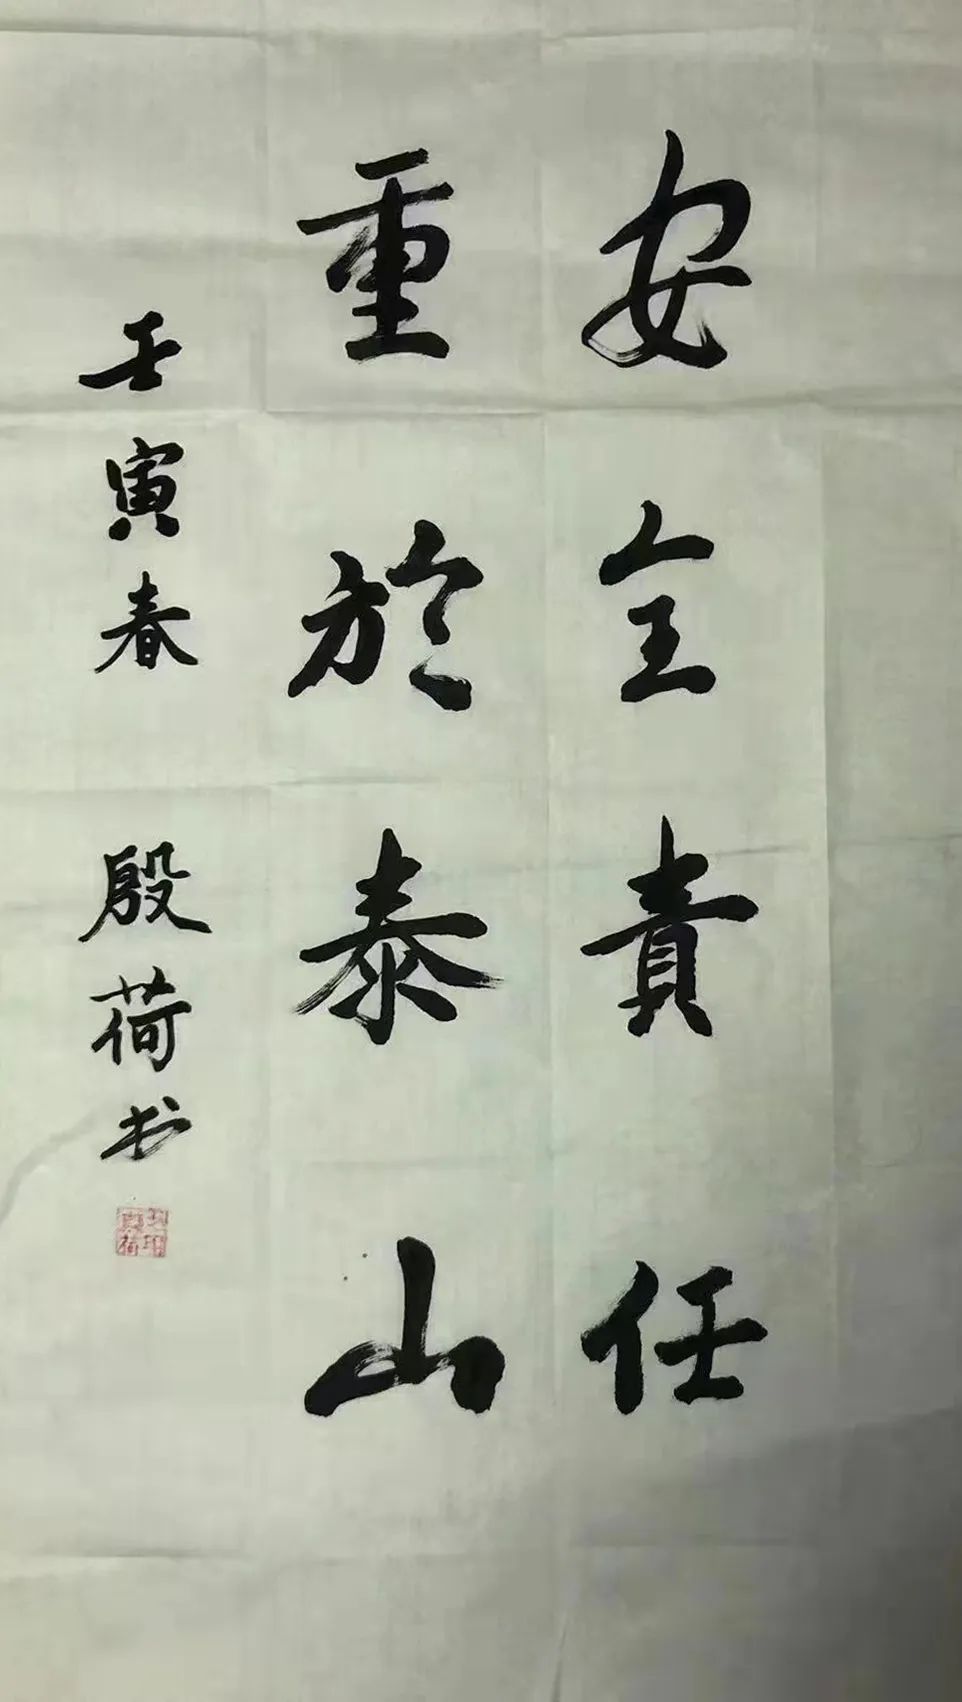 安全責任
重於泰山
壬寅春 殷荷书